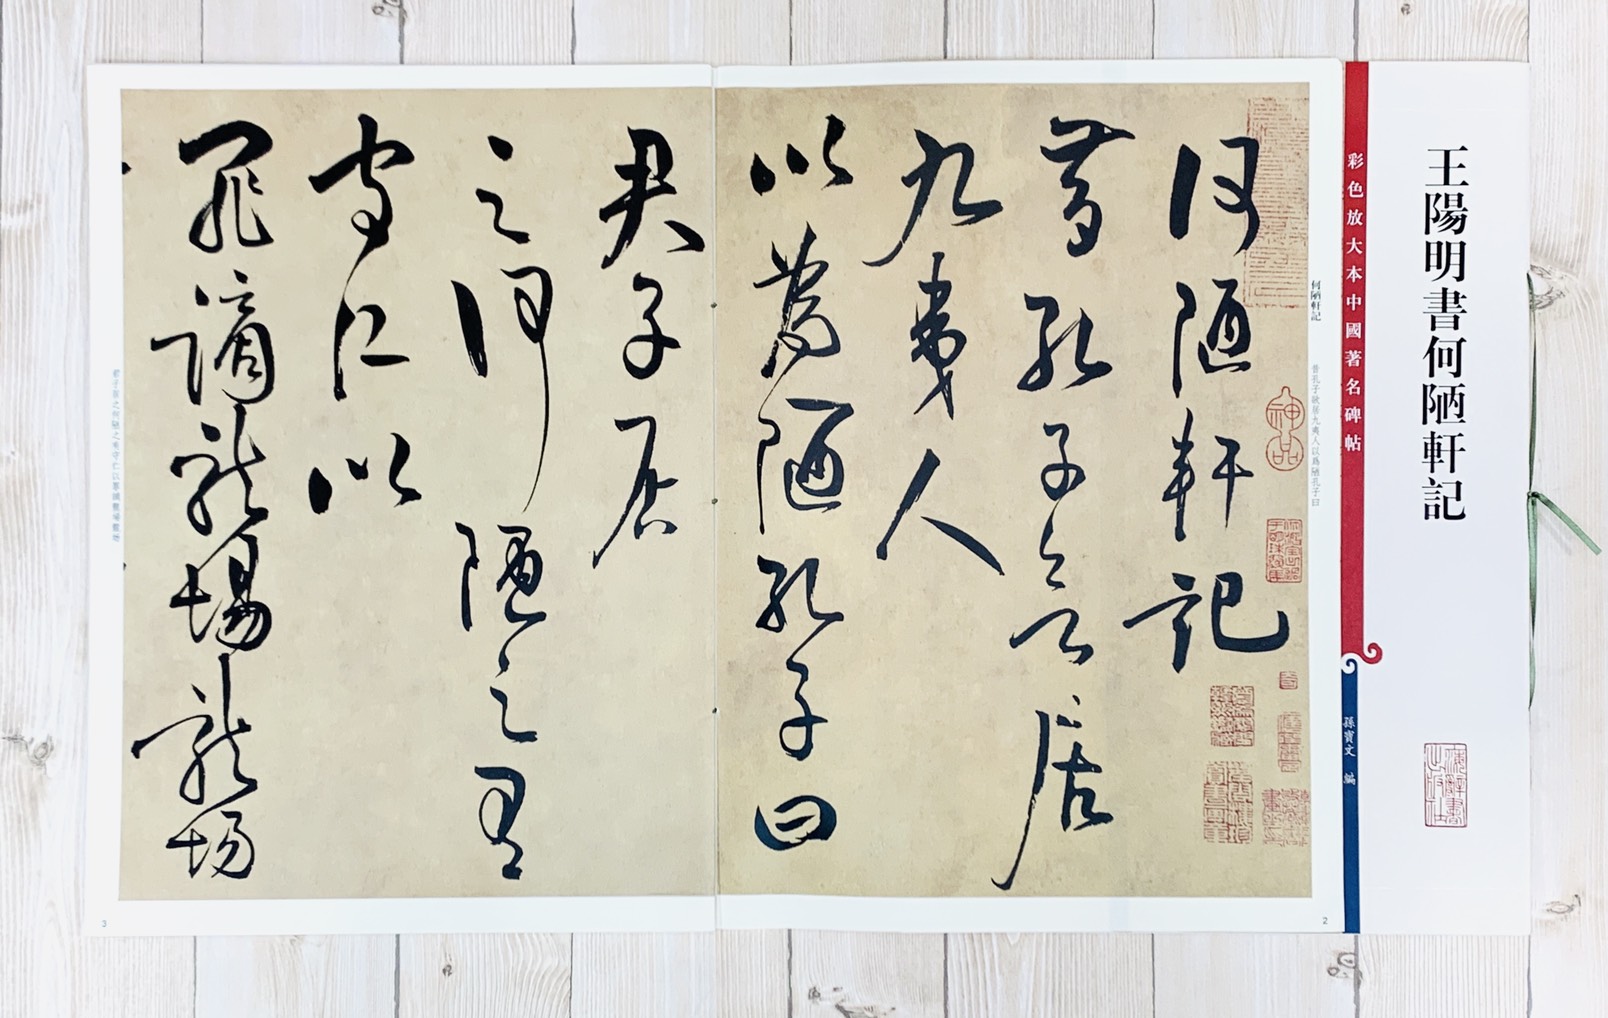 王陽明書何陋軒記
彩色放大本中國著名碑帖
孫寶文 編
何陋軒記
昔孔子欲居九夷人以爲陋孔子曰
神品
何陋軒記
昔孔子欲居
九夷人
以為陋孔子曰
2
君子居
之何陋之有
守仁以
罪謫龍場龍場
君子居之何陋之有守仁以罪謫龍場龍場
3